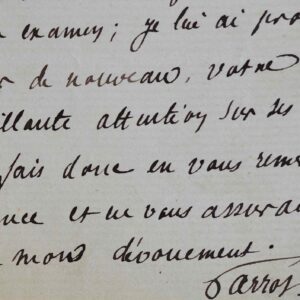 examen; je lui ai pro
de nouveau, votre
illante attention sur ses
fais donc en vous remer
nce et en vous assurant
mond dévouement.
Parrot